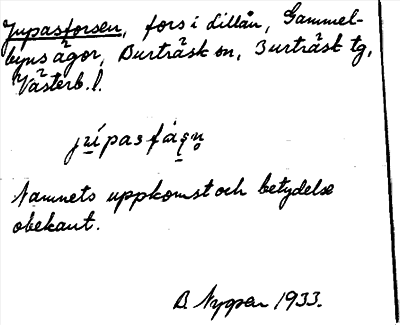 Jupasforsen, fors i Lillån, Gammel-
byns ägor, Burträsk sn, Burträsk tg,
Västerb. l.
Namnets uppkomst och betydelse
obekant.
B. Nygren 1933.